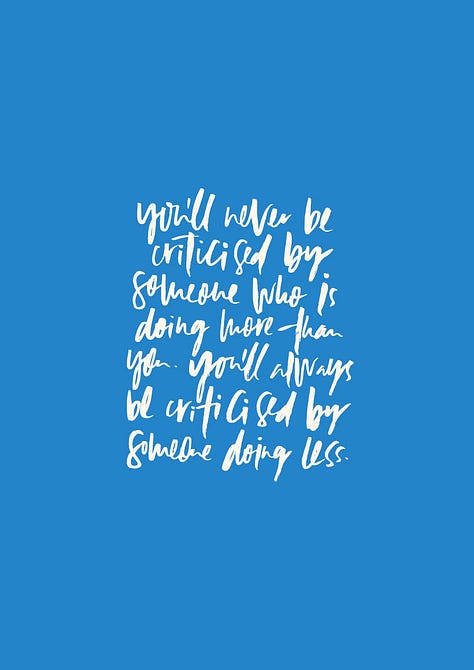 you'll never be
criticised by
someone who is
doing more than
you. you'll always
be criticised by
someone doing less.